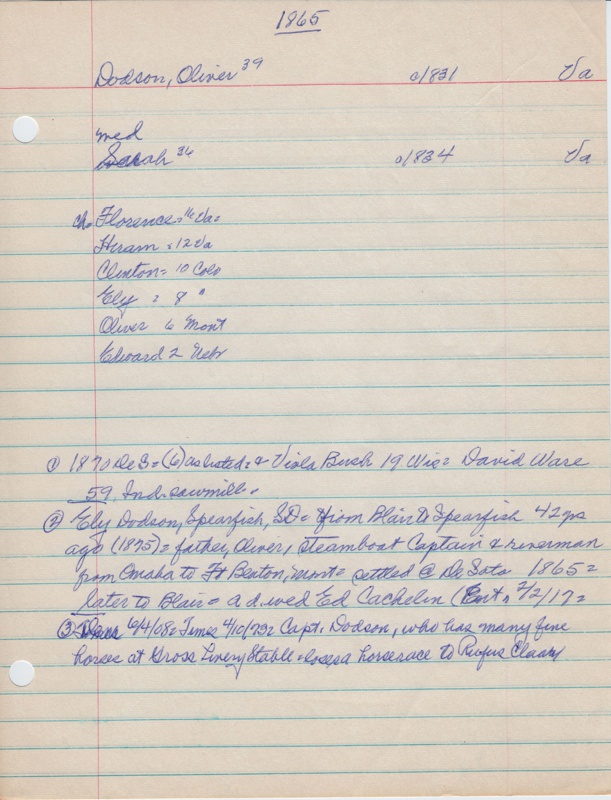 1865
Dodson, Oliver 39 c/1831 Va
med
Sarah 36 c/1834 Va
ch. Florence = 16 Va =
Hiram = 12 Va
Clinton = 10 Colo
Ely = 8 "
Oliver 6 Mont
Edward 2 Nebr
① 1870 De S = (6) as listed = & Viola Bush 19 Wis = David Ware
59, Ind. sawmill =
② Ely Dodson, Spearfish, SD = from Blair to Spearfish 42 yrs
ago (1875) = father, Oliver, Steamboat Captain & riverman
from Omaha to Ft Benton, Mont = settled @ De Soto 1865 =
later to Blair = a d. wed Ed Cachelin (Ent. 2/2/17 =
③ 6/4/08 = Times 4/10/73 = Capt. Dodson, who has many fine
horses at Gross Livery Stable = loses a horserace to Rufus Claary